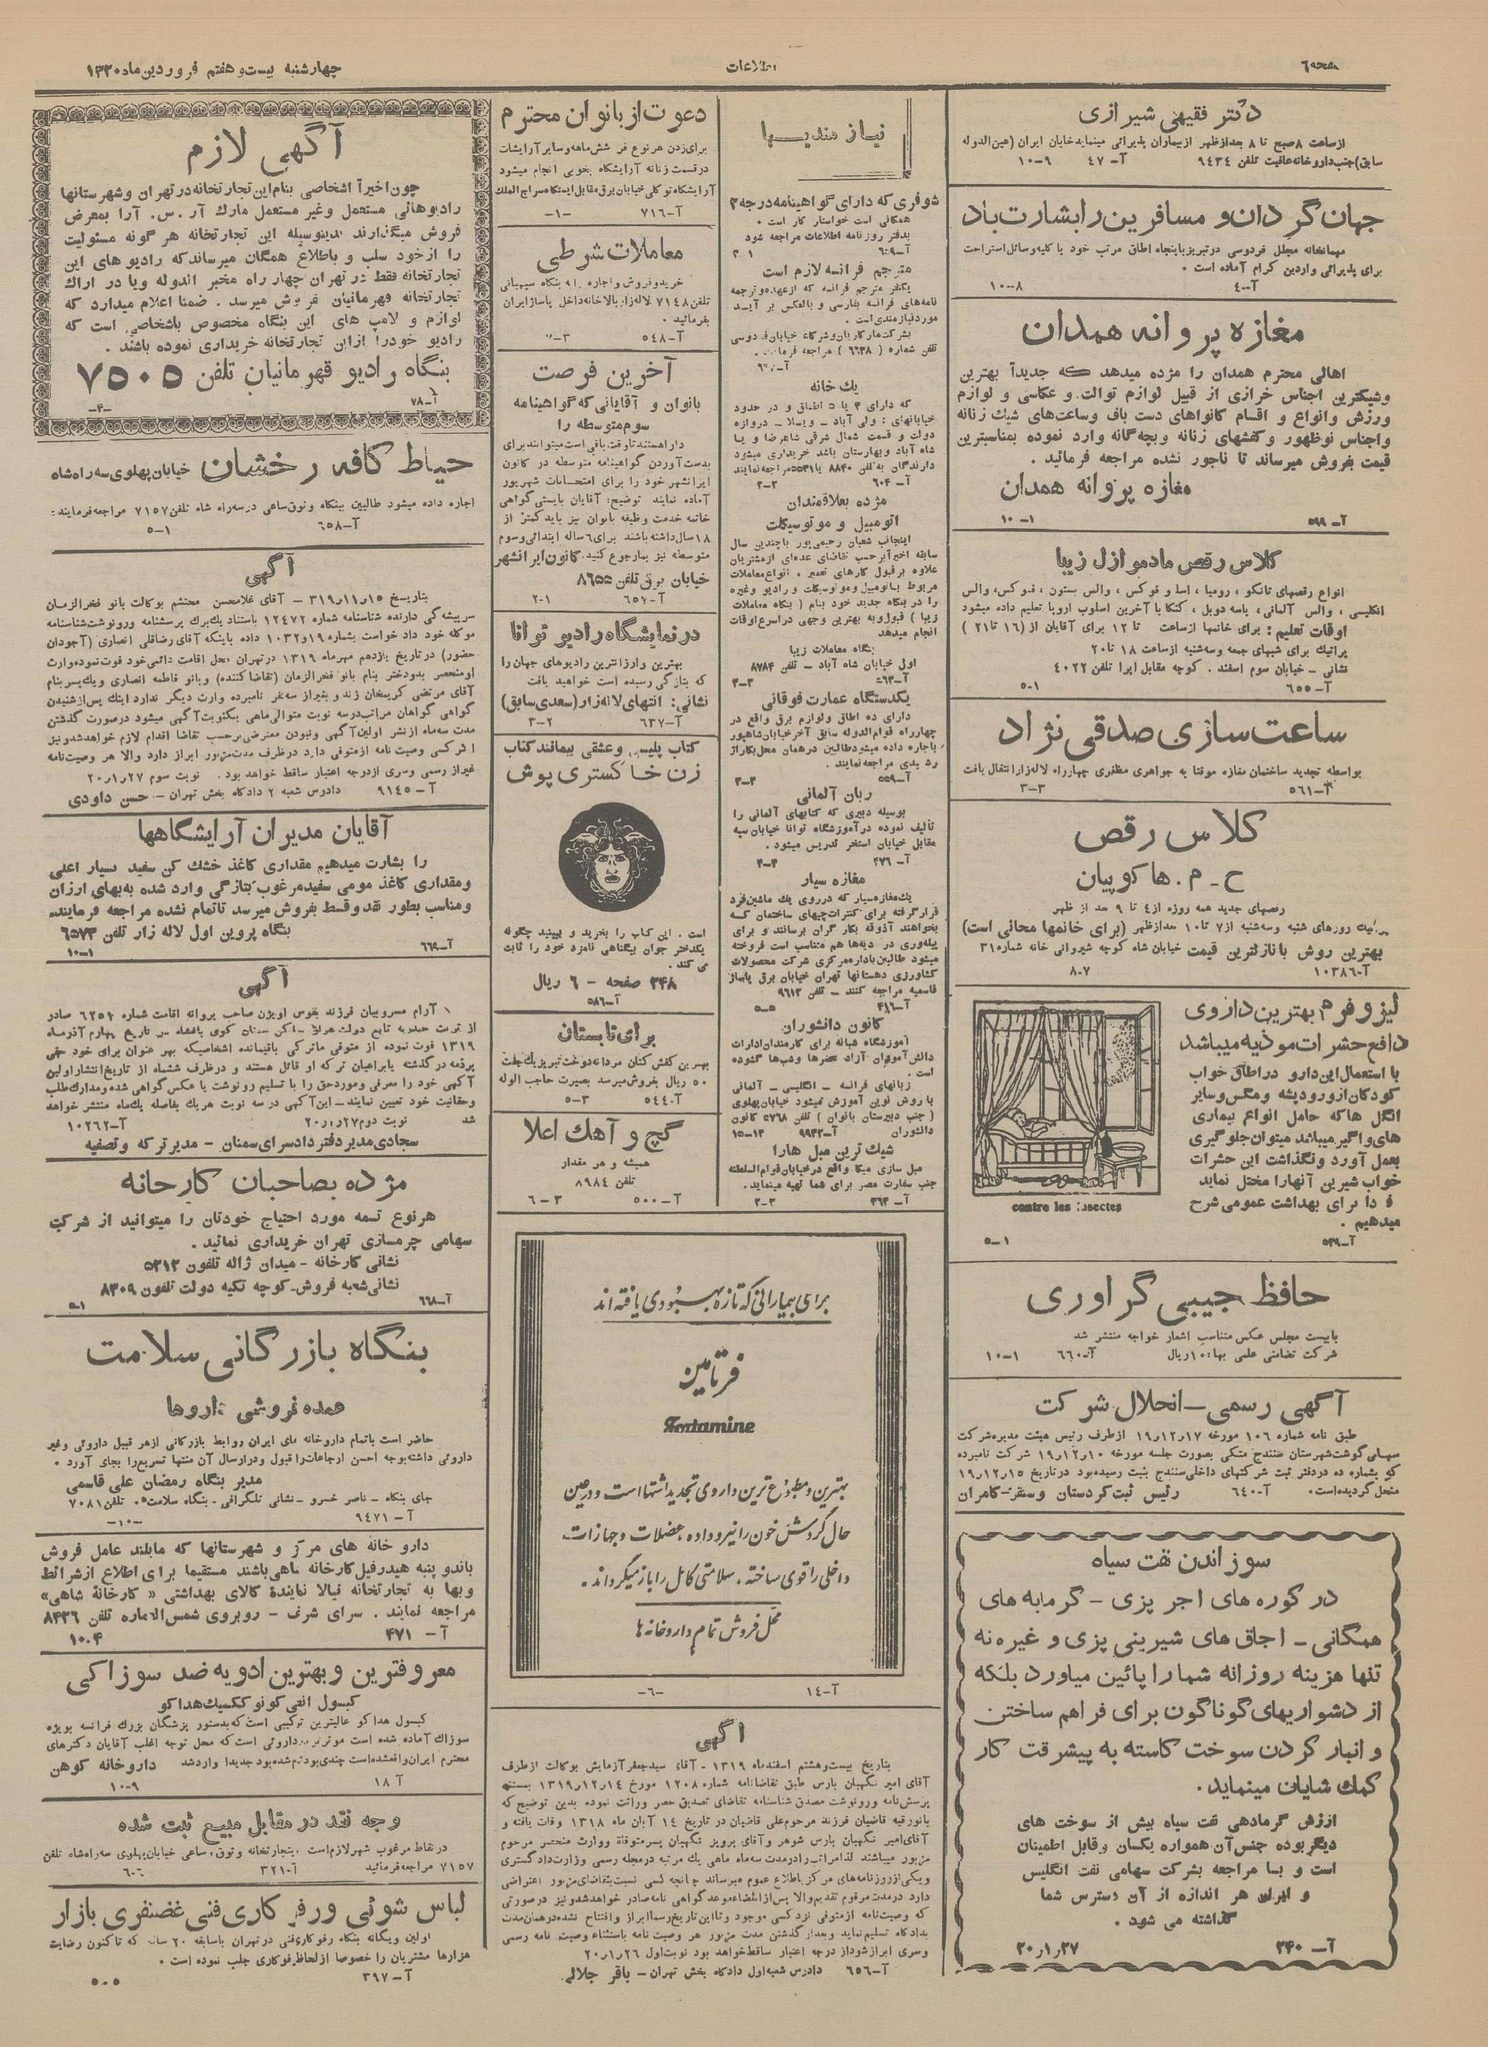 صفحه ٦
اطلاعات
چهارشنبه بیست و هفتم فروردین ماه ۱۳۲۰
دکتر فقیهی شیرازی
از ساعت ۸ صبح تا ۸ بعدازظهر از بیماران پذیرائی مینماید خیابان ایران (عین‌الدوله
سابق) جنب داروخانه عافیت تلفن ۹٤۳٤ آ-٤۷ ۹-۱۰
جهان گردان و مسافرین را بشارت باد
مهمانخانه مجلل فردوسی در تبریز با پنجاه اطاق مرتب خود با کلیه وسائل استراحت
برای پذیرائی واردین گرام آماده است .
آ-٤ ۸-۱۰
مغازه پروانه همدان
اهالی محترم همدان را مژده میدهد که جدیداً بهترین
و شیکترین اجناس خرازی از قبیل لوازم توالت و عکاسی و لوازم
ورزش و انواع و اقسام کانواهای دست باف و ساعت‌های شیک زنانه
و اجناس نوظهور و کفشهای زنانه و بچه‌گانه وارد نموده بمناسبترین
قیمت بفروش میرساند تا ناجور نشده مراجعه فرمائید .
مغازه پروانه همدان
آ-۵۹۹ ۱-۱۰
کلاس رقص مادموازل زیبا
انواع رقصهای تانگو ، رومبا ، اسلوفوکس ، والس بستون ، فوکس ، والس
انگلیسی ، والس آلمانی ، پاسه دوبل ، کنگا با آخرین اسلوب اروپا تعلیم داده میشود
اوقات تعلیم : برای خانمها از ساعت تا ۱۲ برای آقایان از (۱٦ تا ۲۱)
پراتیک برای شبهای جمعه و سه‌شنبه از ساعت ۱۸ تا ۲۰
نشانی - خیابان سوم اسفند . کوچه مقابل اپرا تلفن ٤۰۲۲
آ-٦۵۵ ۱-۵
ساعت سازی صدقی نژاد
بواسطه تجدید ساختمان مغازه موقتا به جواهری مظفری چهارراه لاله‌زار انتقال یافت
آ-۵٦۱ ۳-۳
کلاس رقص
ح-م. هاکوپیان
رقصهای جدید همه روزه از ٤ تا ۹ بعد از ظهر
روزهای شنبه و سه‌شنبه از ۷ تا ۱۰ بعدازظهر (برای خانمها مجانی است)
بهترین روش با نازلترین قیمت خیابان شاه کوچه شیروانی خانه شماره ۳۱
آ-۱۰۳۸٦ ۷-۸
لیزوفرم بهترین داروی
دافع حشرات موذیه میباشد
با استعمال این دارو در اطاق خواب
کودکان از ورود پشه و مگس و سایر
انگل ها که حامل انواع بیماری
های واگیر میباشد میتوان جلوگیری
بعمل آورد و نگذاشت این حشرات
خواب شیرین آنهارا مختل نماید
فردا برای بهداشت عمومی شرح
میدهیم .
contre les insectes
آ-۵۳۹ ۱-۵
حافظ جیبی گراوری
با بیست مجلس عکس متناسب اشعار خواجه منتشر شد
شرکت تضامنی علمی بها: ۱۰ ریال آ-٦٦۰ ۱-۱۰
آگهی رسمی - انحلال شرکت
طبق نامه شماره ۱۰٦ مورخه ۱۷ر۱۲ر۱۹ از طرف رئیس هیئت مدیره شرکت
سهامی گوشت شهرستان سنندج متکی بصورت جلسه مورخه ۱۰ر۱۲ر۱۹ شرکت نامبرده
که بشماره ده در دفتر ثبت شرکتهای داخلی سنندج ثبت رسیده بود در تاریخ ۱۵ر۱۲ر۱۹
منحل گردیده است . آ-٦٤۰ رئیس ثبت کردستان و سنقر - کامران
سوزاندن نفت سیاه
در کوره های اجر پزی - گرمابه های
همگانی - اجاق های شیرینی پزی و غیره نه
تنها هزینه روزانه شما را پائین میاورد بلکه
از دشواریهای گوناگون برای فراهم ساختن
و انبار کردن سوخت کاسته به پیشرفت کار
کمک شایان مینماید.
ارزش گرمادهی نفت سیاه بیش از سوخت های
دیگر بوده جنس آن همواره یکسان و قابل اطمینان
است و بسا مراجعه بشرکت سهامی نفت انگلیس
و ایران هر اندازه از آن دسترس شما
گذاشته می شود .
آ-۳٤۰ ۲۷ر۱ر۲۰
نیازمندیها
شوفری که دارای گواهینامه درجه ۲
همگانی است خواستار کار است .
بدفتر روزنامه اطلاعات مراجعه شود
مترجم فرانسه لازم است
یکنفر مترجم فرانسه که از عهده ترجمه
نامه‌های فرانسه بفارسی و بالعکس بر آید
مورد نیازمندی است .
بشرکت مارکاریان و شرکاء خیابان فردوسی
تلفن شماره (٦٦۳۸) مراجعه فرمایند
یک خانه
که دارای ٤ یا ۵ اطاق و در حدود
خیابانهای : ولی آباد - ویلا - دروازه
دولت و قسمت شمال شرقی شاهرضا و یا
شاه آباد و بهارستان باشد خریداری میشود
دارندگان به تلفن ۸۸٤۰ یا ۵۵۳۱ مراجعه نمایند
آ-٦۰٤ ۲-۲
مژده بعلاقمندان
اتومبیل و موتوسیکلت
اینجانب شعبان رحیمی‌پور با چندین سال
سابقه اخیراً بر حسب تقاضای عده‌ای از مشتریان
علاوه بر قبول کارهای تعمیر ، انواع معاملات
مربوط باتومبیل و موتوسیکلت و رادیو وغیره
را در بنگاه جدید خود بنام (بنگاه معاملات
زیبا) قبول و به بهترین وجهی در اسرع اوقات
انجام میدهد
بنگاه معاملات زیبا
اول خیابان شاه آباد - تلفن ۸۷۸٤
یکدستگاه عمارت فوقانی
دارای ده اطاق و لوازم برق واقع در
چهارراه قوام‌الدوله سابق آخر خیابان شاهپور
باجاره داده میشود طالبین در همان محل بکاراژ
رشیدی مراجعه نمایند .
آ-۵۵۹ ۳-۳
زبان آلمانی
بوسیله دبیری که کتابهای آلمانی را
تألیف نموده در آموزشگاه توانا خیابان سپه
مقابل خیابان استخر تدریس میشود .
آ-٤۷٦ ٤-٤
مغازه سیار
یك مغازه سیار که در روی یك ماشین فرد
قرار گرفته برای کنتراتچیهای ساختمان که
بخواهند آذوقه بکار گران برسانند و برای
پیله‌وری در دیه‌ها هم متناسب است فروخته
میشود طالبین باداره مرکزی شرکت محصولات
کشاورزی دهستانها تهران خیابان برق پاساژ
قاسمیه مراجعه کنند - تلفن ۹٦۱۳
آ-٤۸٦ ۵-۵
کانون دانشوران
آموزشگاه شبانه برای کارمندان ادارات
دانش‌آموزان آزاد عصرها و شبها گشوده
است .
زبانهای فرانسه - انگلیسی - آلمانی
با روش نوین آموزش میشود خیابان پهلوی
(جنب دبیرستان بانوان) تلفن ۵۷٦۸ کانون
دانشوران آ-۹۹٤۲ ۱۳-۱۵
شیک ترین مبل هارا
مبل سازی میکا واقع در خیابان قوام السلطنه
جنب سفارت مصر برای شما تهیه مینماید .
آ-۳٦۳ ۲-۲
دعوت از بانوان محترم
برای زدن هر نوع فر شش ماهه و سایر آرایشات
در قسمت زنانه آرایشگاه بخوبی انجام میشود
آرایشگاه توکلی خیابان برق مقابل ایستگاه سراج الملك
آ-۷۱٦ -۱-
معاملات شرطی
خرید و فروش و اجاره بنگاه سیهانی
تلفن ۷۱٤۸ لاله‌زار بالاخانه داخل پاساژ ایران
بفرمائید .
آ-۵٤۸
آخرین فرصت
بانوان و آقایانی که گواهینامه
سوم متوسطه را
دارا هستند تا وقت باقی است میتوانند برای
بدست آوردن گواهینامه متوسطه در کانون
ایرانشهر خود را برای امتحانات شهریور
آماده نمایند توضیح : آقایان بایستی گواهی
خاتمه خدمت وظیفه بانوان نیز باید کمتر از
۱۸ سال داشته باشند برای ٦ ساله ابتدائی و سوم
متوسطه نیز بما رجوع کنید . کانون ایرانشهر
خیابان برق تلفن ۸٦۵۵
آ-٦۵۷ ۲-۱
در نمایشگاه رادیو توانا
بهترین و ارزانترین رادیوهای جهان را
که بتازگی رسیده است خواهید یافت
نشانی : انتهای لاله‌زار (سعدی سابق)
آ-٦۳۷ ۲-۳
کتاب پلیسی و عشقی بیمانند کتاب
زن خاکستری پوش
است . این کتاب را بخرید و ببینید چگونه
یکدختر جوان بیگناهی نامزد خود را ثابت
می کند .
۲٤۸ صفحه - ٦ ریال
آ-۵۸٦
برای تابستان
بهترین کفش کتان مردانه دوخت تبریز یک جفت
۵۰ ریال بفروش میرسد بصیرت حاجب الوله
آ-۵٤٤ ۳-۵
گچ و آهک اعلا
همیشه و هر مقدار
تلفن ۸۹۸٤
آ-۵۰۰ ۳-٦
برای بیمارانی که تازه بهبودی یافته‌اند
فرتامین
Fortamine
بهترین و مطبوع‌ترین داروی تجدید اشتها است و در عین
حال گردش خون را نیرو داده ، عضلات و جهازات
داخلی را قوی ساخته ، سلامتی کامل را باز میگرداند .
محل فروش تمام داروخانه‌ها
آ-۱٤ -٦-
آگهی
بتاریخ بیست و هشتم اسفند ماه ۱۳۱۹ - آقای سید جعفر آزمایش بوکالت از طرف
آقای امیر نگهبان پارس طبق تقاضانامه شماره ۱۲۰۸ مورخ ۱٤ر۱۲ر۱۳۱۹ بمستند
پرسش‌نامه و رونوشت مصدق شناسنامه تقاضای تصدیق حصر وراثت نموده بدین توضیح که
بانو رقیه قاضیان فرزند مرحوم علی قاضیان در تاریخ ۱٤ آبان ماه ۱۳۱۸ وفات یافته و
آقای امیر نگهبان پارس شوهر و آقای پرویز نگهبان پسر متوفاة و وراث منحصر مرحوم
مزبور میباشند لذا مراتب را در مدت سه ماه ماهی یک مرتبه در مجله رسمی وزارت دادگستری
و یکی از روزنامه‌های مرکز باطلاع عموم میرساند چنانچه کسی نسبت بتقاضای مزبور اعتراضی
دارد در مدت مرقوم تقدیم والا پس از انقضاء موعد گواهی نامه صادر خواهد شد و نیز در صورتی
که وصیت‌نامه از متوفی نزد کسی موجود و تا این تاریخ رسما ابراز و افتتاح نشده در همان مدت
بدادگاه تسلیم نماید و بعد از گذشتن مدت مزبور هر وصیت نامه باستثناء وصیت نامه رسمی
و سری ابراز شود از درجه اعتبار ساقط خواهد بود نوبت اول ۲٦ر۱ر۲۰
آ-٦۵٦ دادرس شعبه اول دادگاه بخش تهران - باقر جلالی
آگهی لازم
چون اخیراً اشخاصی بنام این تجارتخانه در تهران و شهرستانها
رادیوهائی مستعمل و غیر مستعمل مارك آر . س . آ را بمعرض
فروش میگذارند بدینوسیله این تجارتخانه هر گونه مسئولیت
را از خود سلب و باطلاع همگان میرساند که رادیو های این
تجارتخانه فقط در تهران چهار راه مخبرالدوله و یا در اراك
تجارتخانه قهرمانیان فروش میرسد . ضمنا اعلام میدارد که
لوازم و لامپ های این بنگاه مخصوص باشخاصی است که
رادیو خود را از این تجارتخانه خریداری نموده باشند .
بنگاه رادیو قهرمانیان تلفن ۷۵۰۵
آ-۷۸ -٤-
حیاط کافه رخشان خیابان پهلوی سه راه شاه
اجاره داده میشود طالبین ببنگاه وثوق ساعی در سه راه شاه تلفن ۷۱۵۷ مراجعه فرمایند :
آ-٦۵۸ ۱-۵
آگهی
بتاریخ ۱۵ر۱۱ر۳۱۹ - آقای غلامحسن محتشم بوکالت بانو فخرالزمان
سررشته‌گی دارنده شناسنامه شماره ۱۲٤۷۲ باستناد یک برگ پرسشنامه و رونوشت شناسنامه
موکله خود داد خواست بشماره ۱۰۳۲٫۱۹ داده باینکه آقای رضاقلی انصاری (آجودان
حضور) در تاریخ یازدهم مهرماه ۱۳۱۹ در تهران محل اقامت دائمی خود فوت نموده وراث
او منحصر بدو دختر بنام بانو فخرالزمان (تقاضا کننده) و بانو فاطمه انصاری و یک پسر بنام
آقای مرتضی کریمخان زند و بغیر از سه نفر نامبرده وارث دیگر ندارد اینك پس از شنیدن
گواهی گواهان مراتب در سه نوبت متوالی ماهی یک نوبت آگهی میشود در صورت گذشتن
مدت سه ماه از نشر اولین آگهی و نبودن معترض بر حسب تقاضا اقدام لازم خواهد شد و نیز
اگر کسی وصیت نامه از متوفی دارد در ظرف مدت مزبور ابراز دارد والا هر وصیت نامه
غیر از رسمی و سری از درجه اعتبار ساقط خواهد بود . نوبت سوم ۲۷ر۱ر۲۰
آ-۹۱٤۵ دادرس شعبه ۲ دادگاه بخش تهران - حسن داودی
آقایان مدیران آرایشگاهها
را بشارت میدهیم مقداری کاغذ خشک کن سفید بسیار اعلی
و مقداری کاغذ مومی سفید مرغوب بتازگی وارد شده به بهای ارزان
و مناسب بطور نقد و قسط بفروش میرسد تا تمام نشده مراجعه فرمایند .
بنگاه پروین اول لاله زار تلفن ٦۵۷۳
آ-٦٦۹ ۱-۱۰
آگهی
آرام مسروبیان فرزند بغوس اویژن صاحب پروانه اقامت شماره ٦۲۵۱ صادر
۱۳۱۹ فوت نموده از متوفی ماترکی باقیمانده اشخاصیکه بهر عنوان برای خود حقی
بر ذمه درگذشته یا بر اعیان ترکه او قائل هستند و در ظرف ششماه از تاریخ انتشار اولین
آگهی خود را معرفی و مورد حق را با تسلیم رونوشت یا عکس گواهی شده و مدارک طلب
و حقانیت خود تعیین نمایند - این آگهی در سه نوبت هر یک بفاصله یکماه منتشر خواهد
شد نوبت دوم ۲۷ر۱ر۲۰ آ-۱۰۲٦۲
سجادی مدیر دفتر دادسرای سمنان - مدیر ترکه و تصفیه
مژده بصاحبان کارخانه
هر نوع تسمه مورد احتیاج خودتان را میتوانید از شرکت
سهامی چرمسازی تهران خریداری نمائید .
نشانی کارخانه - میدان ژاله تلفون ۵۳۱۲
نشانی شعبه فروش - کوچه تکیه دولت تلفون ۸۳۰۹
آ-٦٦۸ ۱-۵
بنگاه بازرگانی سلامت
عمده فروشی داروها
حاضر است با تمام داروخانه های ایران روابط بازرگانی از هر قبیل داروئی و غیر
داروئی داشته بوجه احسن ارجاعات را قبول و در ارسال آن منتها تسریع را بجای آورد .
مدیر بنگاه رمضان علی قاسمی
جای بنگاه - ناصر خسرو - نشانی تلگرافی - بنگاه سلامت ۰۵ تلفن ۷۰۸۱
آ-۹٤۷۱ -۱۰-
دارو خانه های مرکز و شهرستانها که مایلند عامل فروش
باند و پنبه هیدرفیل کارخانه شاهی باشند مستقیما برای اطلاع از شرائط
و بها به تجارتخانه فیلا نمایندۀ کالای بهداشتی «کارخانۀ شاهی»
مراجعه نمایند . سرای شرف - روبروی شمس‌العماره تلفن ۸٤۳٦
آ-٤۷۱ ٤-۱۰
معروفترین و بهترین ادویه ضد سوزاکی
کپسول انتی گونوککسیك هداکو
کپسول هداکو عالیترین ترکیبی است که بدستور پزشگان بزرك فرانسه بویژه
سوزاك آماده شده است موثرترین داروئی است که محل توجه اغلب آقایان دکترهای
محترم ایران واقع شده است چندی بود تمام شده بود جدیدا وارد شد داروخانه کوهن
آ-۱۸ ۹-۱۰
وجه نقد در مقابل مبیع ثبت شده
در نقاط مرغوب شهر لازم است ، بتجارتخانه وثوق ساعی خیابان پهلوی سه راه شاه تلفن
۷۱۵۷ مراجعه فرمائید آ-۳۲۱ ٦-٦
لباس شوئی و رفو کاری فنی غضنفری بازار
اولین و یگانه بنگاه رفوکاری فنی در تهران با سابقه ۲۰ ساله که تاکنون رضایت
هزارها مشتریان را خصوصا از لحاظ رفوکاری جلب نموده است .
آ-۳۹۷ ۵-۵